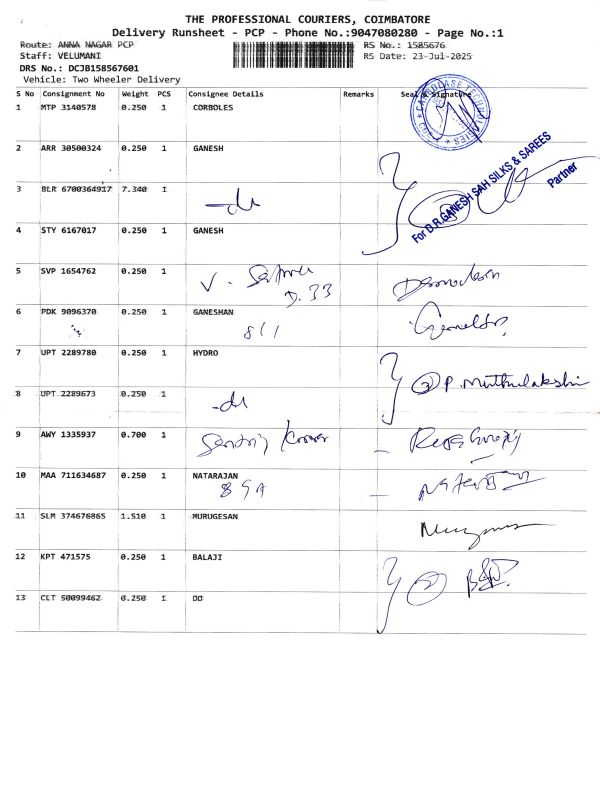 THE PROFESSIONAL COURIERS, COIMBATORE
Delivery Runsheet - PCP - Phone No.:9047080280 - Page No.:1
Route: ANNA NAGAR PCP
RS No.: 1585676
Staff: VELUMANI
RS Date: 23-Jul-2025
DRS No.: DCJB158567601
Vehicle: Two Wheeler Delivery
S No Consignment No Weight PCS Consignee Details Remarks Seal & Signature
1 MTP 3140578 0.250 1 CORBOLES
2 ARR 30500324 0.250 1 GANESH
For D.R.GANESH SAH SILKS & SAREES
Partner
3 BLR 6700364917 7.340 1
4 STY 6167017 0.250 1 GANESH
5 SVP 1654762 0.250 1
D. 33
6 PDK 9096370 0.250 1 GANESHAN
8/1
7 UPT 2289780 0.250 1 HYDRO
2 P. Muthulakshi
8 UPT 2289673 0.250 1
9 AWY 1335937 0.700 1
10 MAA 711634687 0.250 1 NATARAJAN
11 SLM 374676865 1.510 1 MURUGESAN
12 KPT 471575 0.250 1 BALAJI
2
13 CLT 50099462 0.250 1 DO